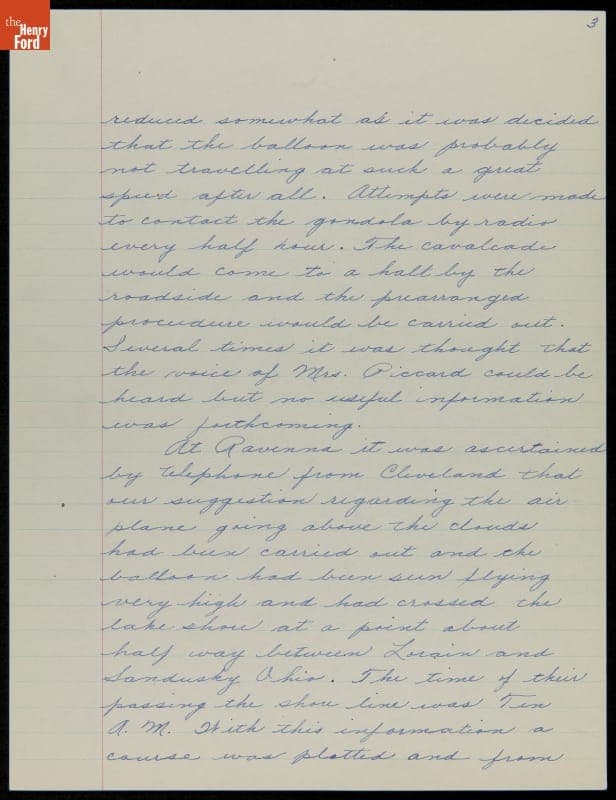 the
Henry
Ford
3
reduced somewhat as it was decided
that the balloon was probably
not travelling at such a great
speed after all. Attempts were made
to contact the gondola by radio
every half hour. The cavalcade
would come to a halt by the
roadside and the prearranged
proceedure would be carried out.
Several times it was thought that
the voice of Mrs. Piccard could be
heard but no useful information
was forthcoming.
At Ravenna it was ascertained
by telephone from Cleveland that
our suggestion regarding the air
plane going above the clouds
had been carried out and the
balloon had been seen flying
very high and had crossed the
lake shore at a point about
half way between Lorain and
Sandusky Ohio. The time of their
passing the shore line was Ten
A. M. With this information a
course was plotted and from